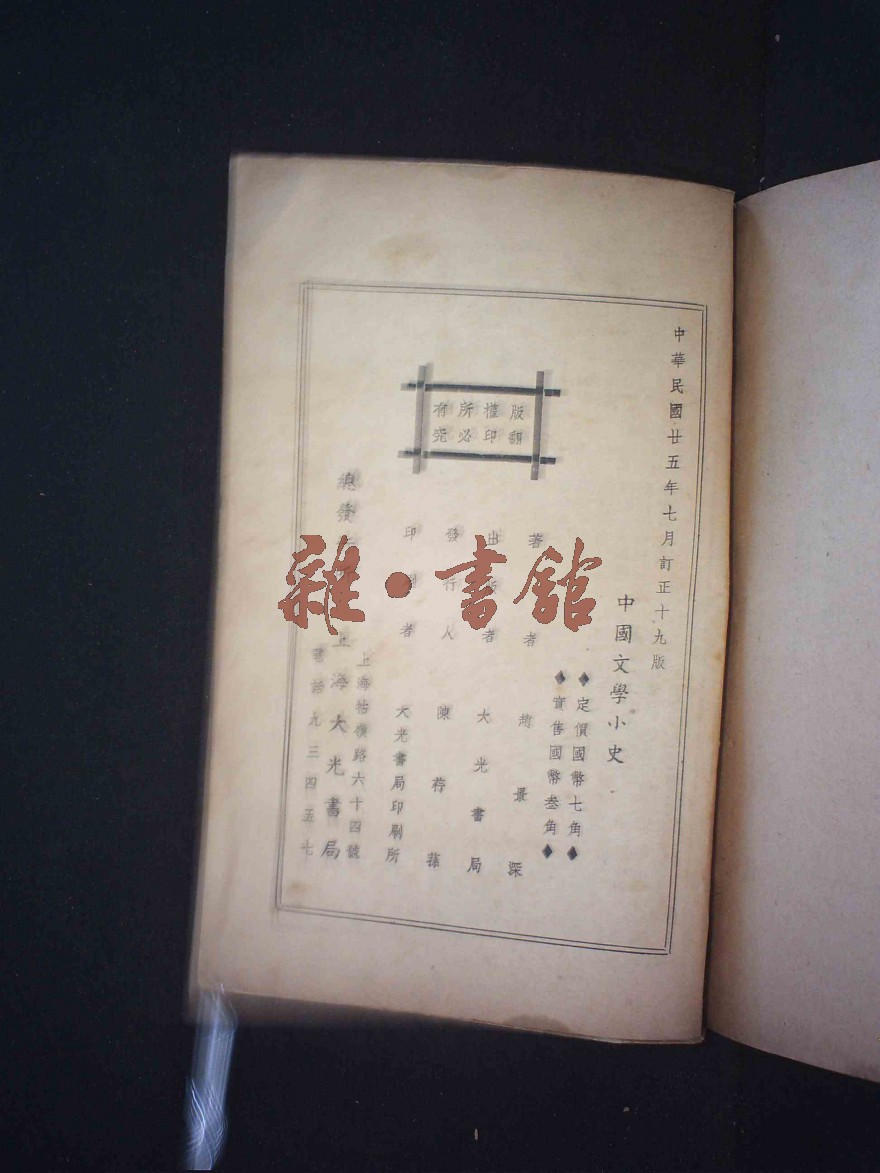 中華民國廿五年七月訂正十九版
中國文學小史
◆定價國幣七角◆
◆實售國幣叁角◆
著者 趙景深
出版者 大光書局
發行人 陳荇蓀
印刷者 大光書局印刷所
版權所有
翻印必究
上海牯嶺路六十四號
總發 上海大光書局
電話九三四五七
雜·書館